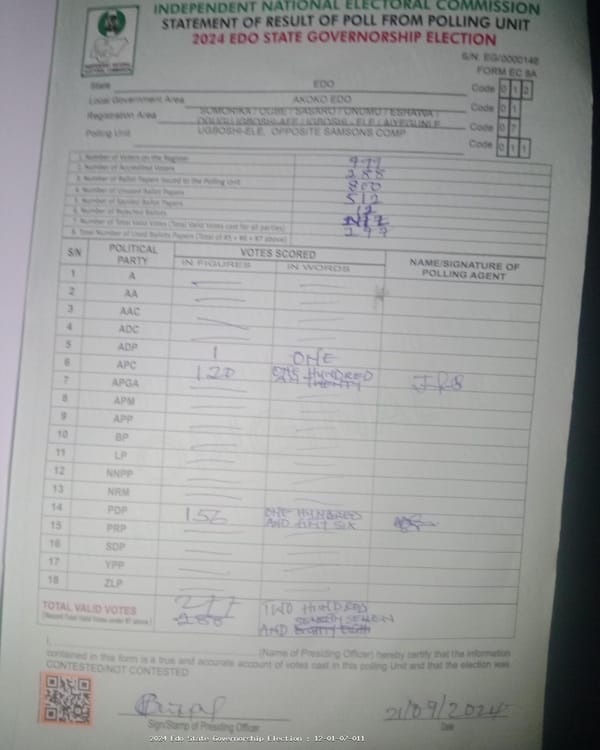 INDEPENDENT NATIONAL ELECTORAL COMMISSION
STATEMENT OF RESULT OF POLL FROM POLLING UNIT
2024 EDO STATE GOVERNORSHIP ELECTION
S/N. EG/0000148
FORM EC 8A
State EDO Code 0 1 2
Local Government Area AKOKO EDO Code 0 1
Registration Area SOMORIKA / OGBE / SASARO / ONUMU / ESHAWA / DOUGUGBOSHI-AFE / UGBOSHI - ELE / AIYEGUNLE Code 0 7
Polling Unit UGBOSHI-ELE, OPPOSITE SAMSONS COMP. Code 0 1 1
1. Number of Voters on the Register
2. Number of Accredited Voters 288
3. Number of Ballot Papers Issued to the Polling Unit 800
4. Number of Unused Ballot Papers 512
5. Number of Spoiled Ballot Papers
6. Number of Rejected Ballots
7. Number of Total Valid Votes (Total Valid Votes cast for all parties)
8. Total Number of Used Ballots Papers (Total of #5 + #6 + #7 above)
S/N POLITICAL PARTY VOTES SCORED NAME/SIGNATURE OF POLLING AGENT
IN FIGURES IN WORDS
1 A
2 AA
3 AAC
4 ADC
5 ADP 1 ONE
6 APC 120 ONE HUNDRED AND TWENTY
7 APGA
8 APM
9 APP
10 BP
11 LP
12 NNPP
13 NRM
14 PDP 156 ONE HUNDRED AND FIFTY SIX
15 PRP
16 SDP
17 YPP
18 ZLP
TOTAL VALID VOTES 277 TWO HUNDRED
288 SEVENTY SEVEN
AND EIGHTY EIGHT
I, (Name of Presiding Officer) hereby certify that the information
contained in this form is a true and accurate account of votes cast in this polling Unit and that the election was
CONTESTED/NOT CONTESTED
21/09/2024
Sign/Stamp of Presiding Officer Date
2024 Edo State Governorship Election : 12-01-07-011